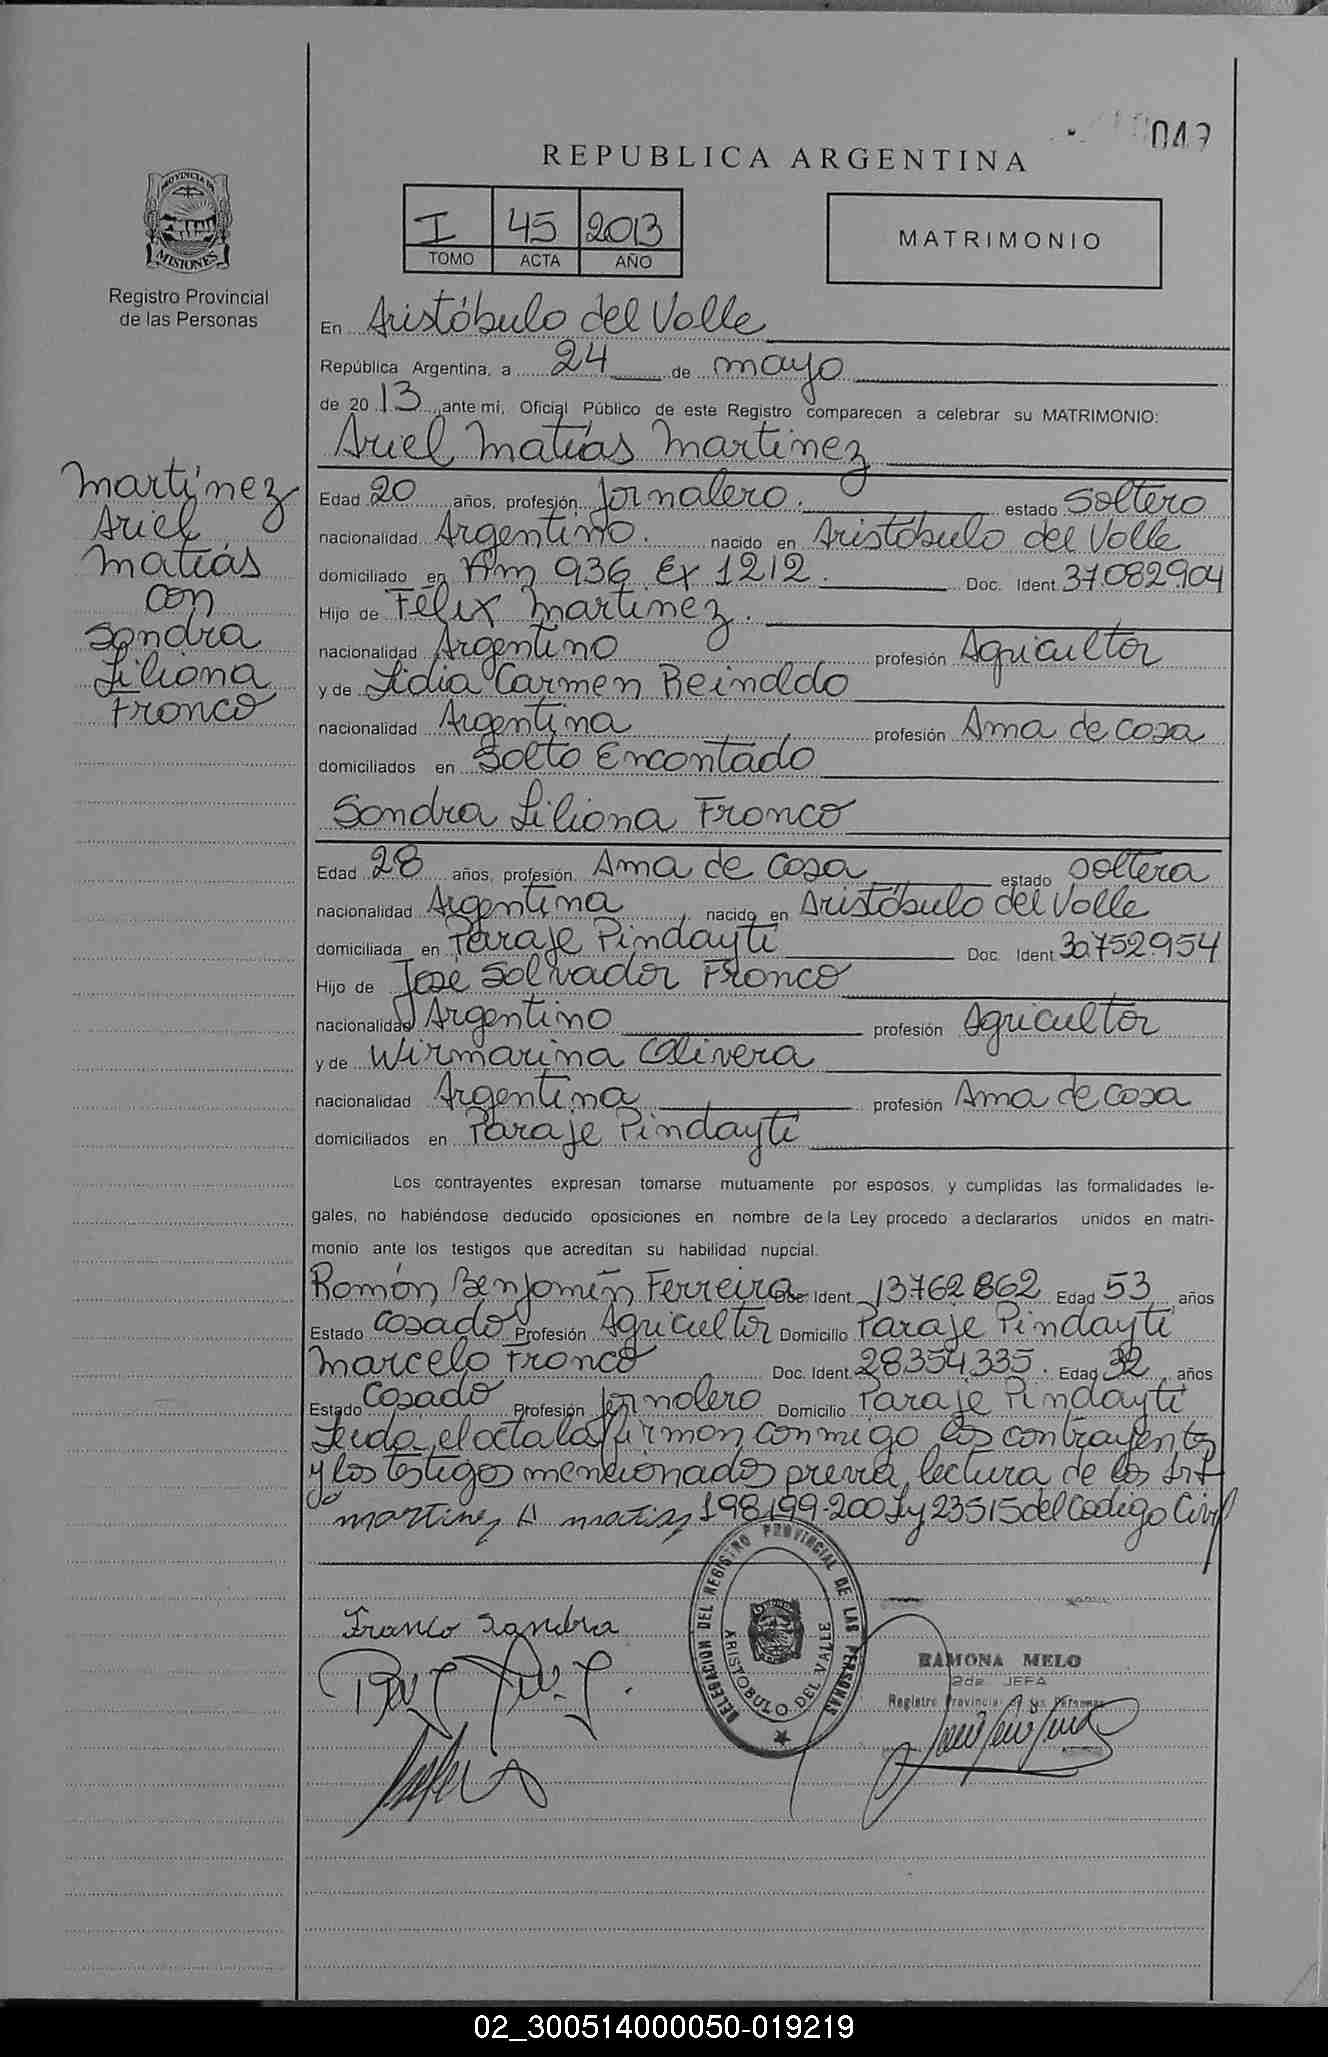 047
REPUBLICA ARGENTINA
PROVINCIA DE
MISIONES
Registro Provincial
de las Personas
I 45 2013
TOMO ACTA AÑO
MATRIMONIO
En Aristóbulo del Valle
República Argentina, a 24 de mayo
de 20 13 ante mi, Oficial Público de este Registro comparecen a celebrar su MATRIMONIO:
Ariel Matías Martínez
Martínez
Ariel
Matías
con
Sandra
Liliana
Franco
Edad 20 años, profesión Jornalero. estado Soltero
nacionalidad Argentino. nacido en Aristóbulo del Valle
domiciliado en Km 936 Ex 1212. Doc. Ident. 37.082.904
Hijo de Félix Martínez.
nacionalidad Argentino profesión Agricultor
y de Lidia Carmen Reinaldo
nacionalidad Argentina profesión Ama de casa
domiciliados en Salto Encantado
Sandra Liliana Franco
Edad 28 años, profesión Ama de casa estado soltera
nacionalidad Argentina nacido en Aristóbulo del Valle
domiciliada en Paraje Pindaytí Doc. Ident. 30.752.954
Hijo de Jose Salvador Franco
nacionalidad Argentino profesión Agricultor
y de Wirmarina Olivera
nacionalidad Argentina profesión Ama de casa
domiciliados en Paraje Pindaytí
Los contrayentes expresan tomarse mutuamente por esposos, y cumplidas las formalidades le-
gales, no habiéndose deducido oposiciones en nombre de la Ley procedo a declararlos unidos en matri-
monio ante los testigos que acreditan su habilidad nupcial.
Ramón Benjamín Ferreira Doc. Ident. 13762862 Edad 53 años
Estado Casado Profesión Agricultor Domicilio Paraje Pindaytí
Marcelo Franco Doc. Ident. 28.354.335. Edad 32 años
Estado Casado Profesión Jornalero Domicilio Paraje Pindaytí
Leida el acta la firman conmigo los contrayentes
y los testigos mencionados previa lectura de los Art
198-199-200 Ly 23515 del Codigo Civil
Martinez A Matias
Franco Sandra
DELEGACION DEL REGISTRO PROVINCIAL DE LAS PERSONAS
ARISTOBULO DEL VALLE
RAMONA MELO
2da. JEFA
Registro Provincial de las Personas
02_300514000050-019219